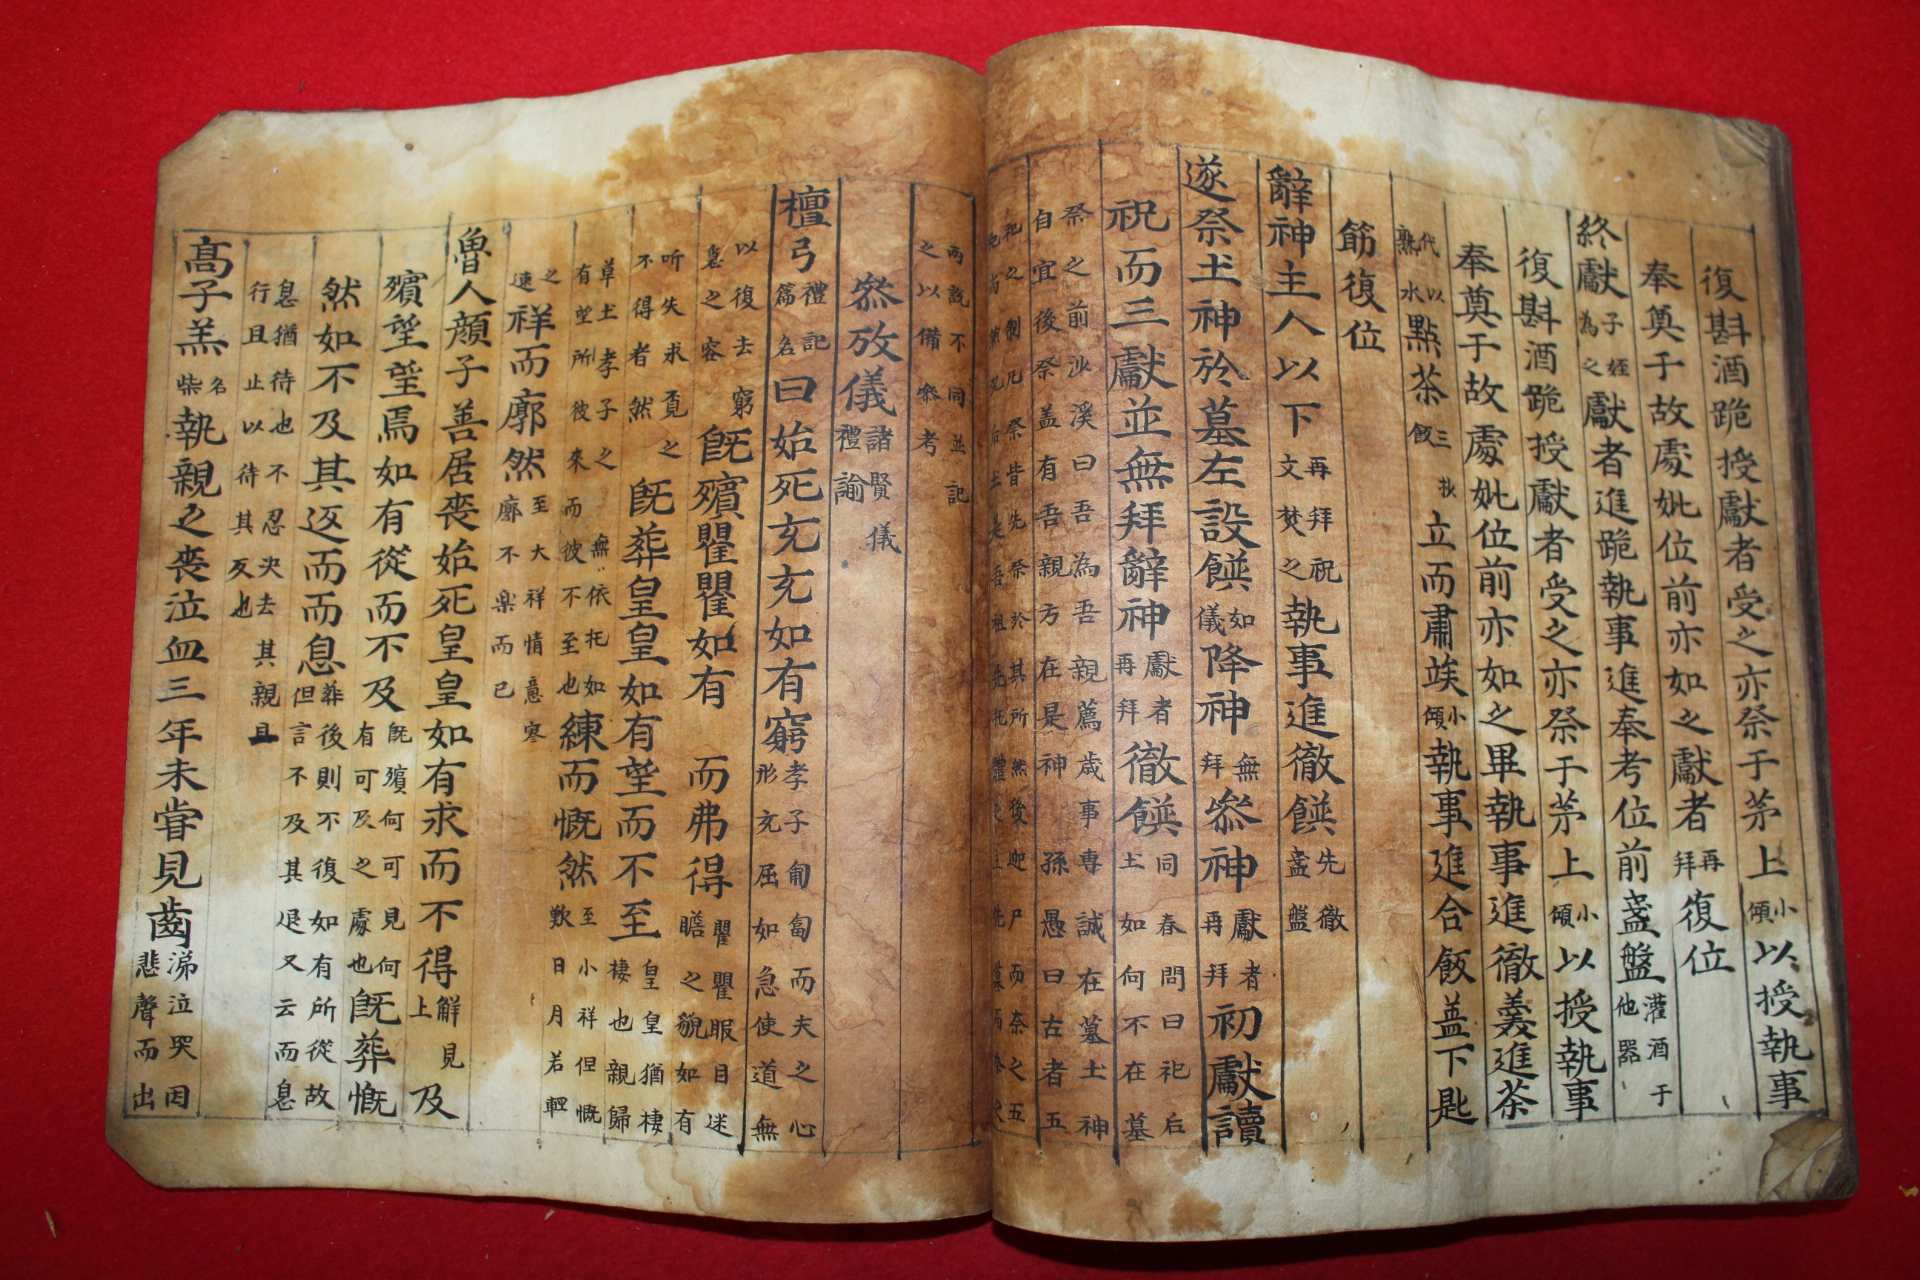 復斟酒跪授獻者受之亦祭于茅上小傾以授執事
奉奠于故處妣位前亦如之獻者再拜復位
終獻子姪為之獻者進跪執事進奉考位前盞盤灌酒于他器
復斟酒跪授獻者受之亦祭于茅上小傾以授執事
奉奠于故處妣位前亦如之畢執事進徹羹進茶
代以熟水點茶三飯抄立而肅竢小傾執事進合飯盖下匙
筯復位
辭神主人以下再拜祝文焚之執事進徹饌先徹盞盤
遂祭土神於墓左設饌如儀降神無拜叅神獻者再拜初獻讀
祝而三獻並無拜辭神獻者再拜徹饌同春問曰祀后土如何不在墓
祭之前沙溪曰吾為吾親薦歳事専誠在墓土神
自宜後祭盖有吾親方在是神孫愚曰古者五
祀之制凡祭皆先祭於其所然後迎尸而祭之五
両説不同並記
之以備叅考
叅攷儀諸賢儀禮論
檀弓禮記篇名曰始死充充如有窮孝子匍匐而夫之心形充屈如急使道無
以復去窮
意之容旣殯瞿瞿如有 而弗得瞿瞿眼目迷瞻之貌如有
听失求覓之
不得者然旣葬皇皇如有望而不至皇皇猶棲棲也親歸
草土孝子之無依托如
有望所彼來而彼不至也練而慨然至小祥但慨歎日月若輕
之速祥而廓然至大祥情意寥廓不楽而已
魯人顔子善居喪始死皇皇如有求而不得觧見上及
殯望望焉如有從而不及旣殯何可見何有可及之處也旣葬慨
然如不及其返而而息葬後則不復如有所從故但言不及其退又云而息
息猶待也不忍决去其親且
行且止以待其反也
髙子羔名柴執親之喪泣血三年未甞見齒涕泣哭因悲聲而出